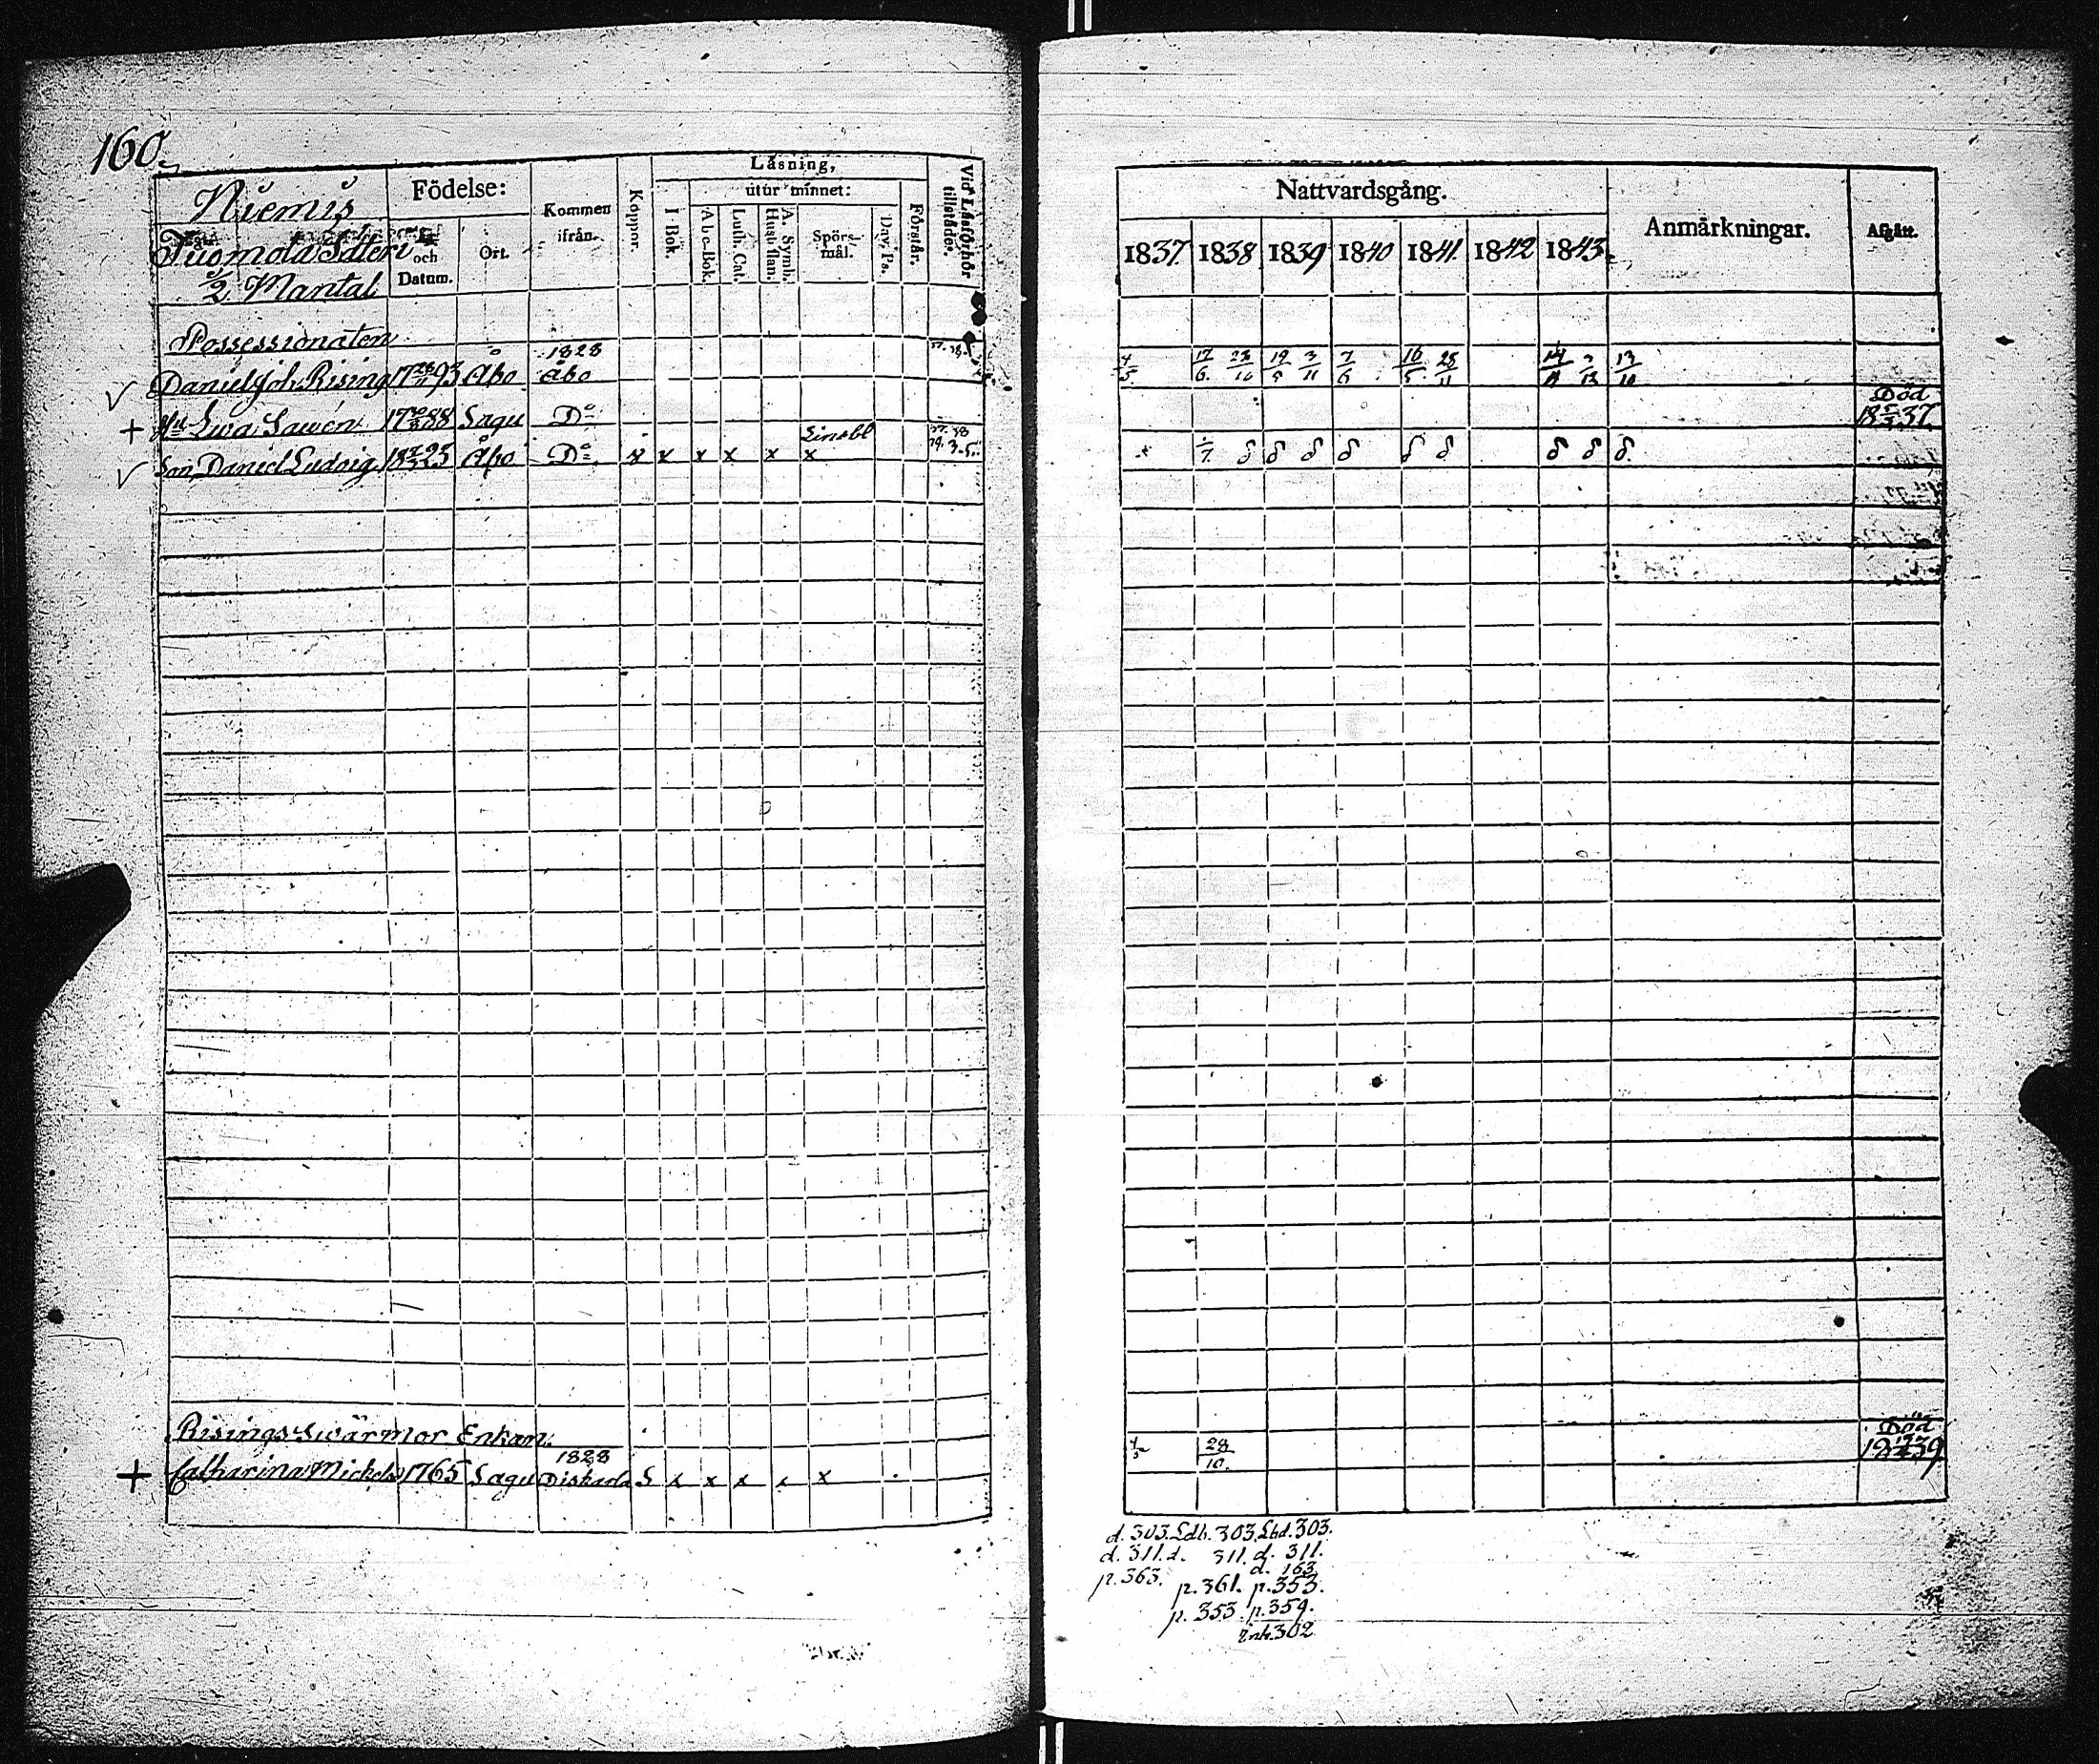 160.
Niemis
Tuomola Säteri
1/2 Mantal
Födelse:
och
Datum.
Ort.
Kommen
ifrån.
Koppor.
Läsning,
utur minnet:
I Bok.
A b c-Bok.
Luth. Cat.
A. Symb.
Hust. flan.
Spörs-
mål.
Dav. Ps.
Förstår.
Vid Läsförhör
tillstädde.
Possessionaten
Daniel Joh. Rising 17 93 Åbo 1828 Åbo
Hu Lwa Sawén 17 88 Sagu Do
Son Daniel Ludvig 18 23 Åbo Do x x x x x x
Risings Swärmor Enkan
+ Catharina Mickels 1765 Sagu 1828 Diskarla S x x x x x
Nattvardsgång.
1837. 1838 1839 1840 1841. 1842 1843.
Anmärkningar.
Afgått.
4/5 17/6. 23/10 19/5 3/11 7/6 16/5. 28/11 13/10
Död
18 37.
1/7. δ δ δ δ δ δ δ δ δ.
28/10.
Död
18 39
d. 303. Ldb. 303. Lbd. 303.
d. 311. d. 311. d. 311.
d. 163.
p. 363. p. 361. p. 353.
p. 353. p. 359.
Enk. 302